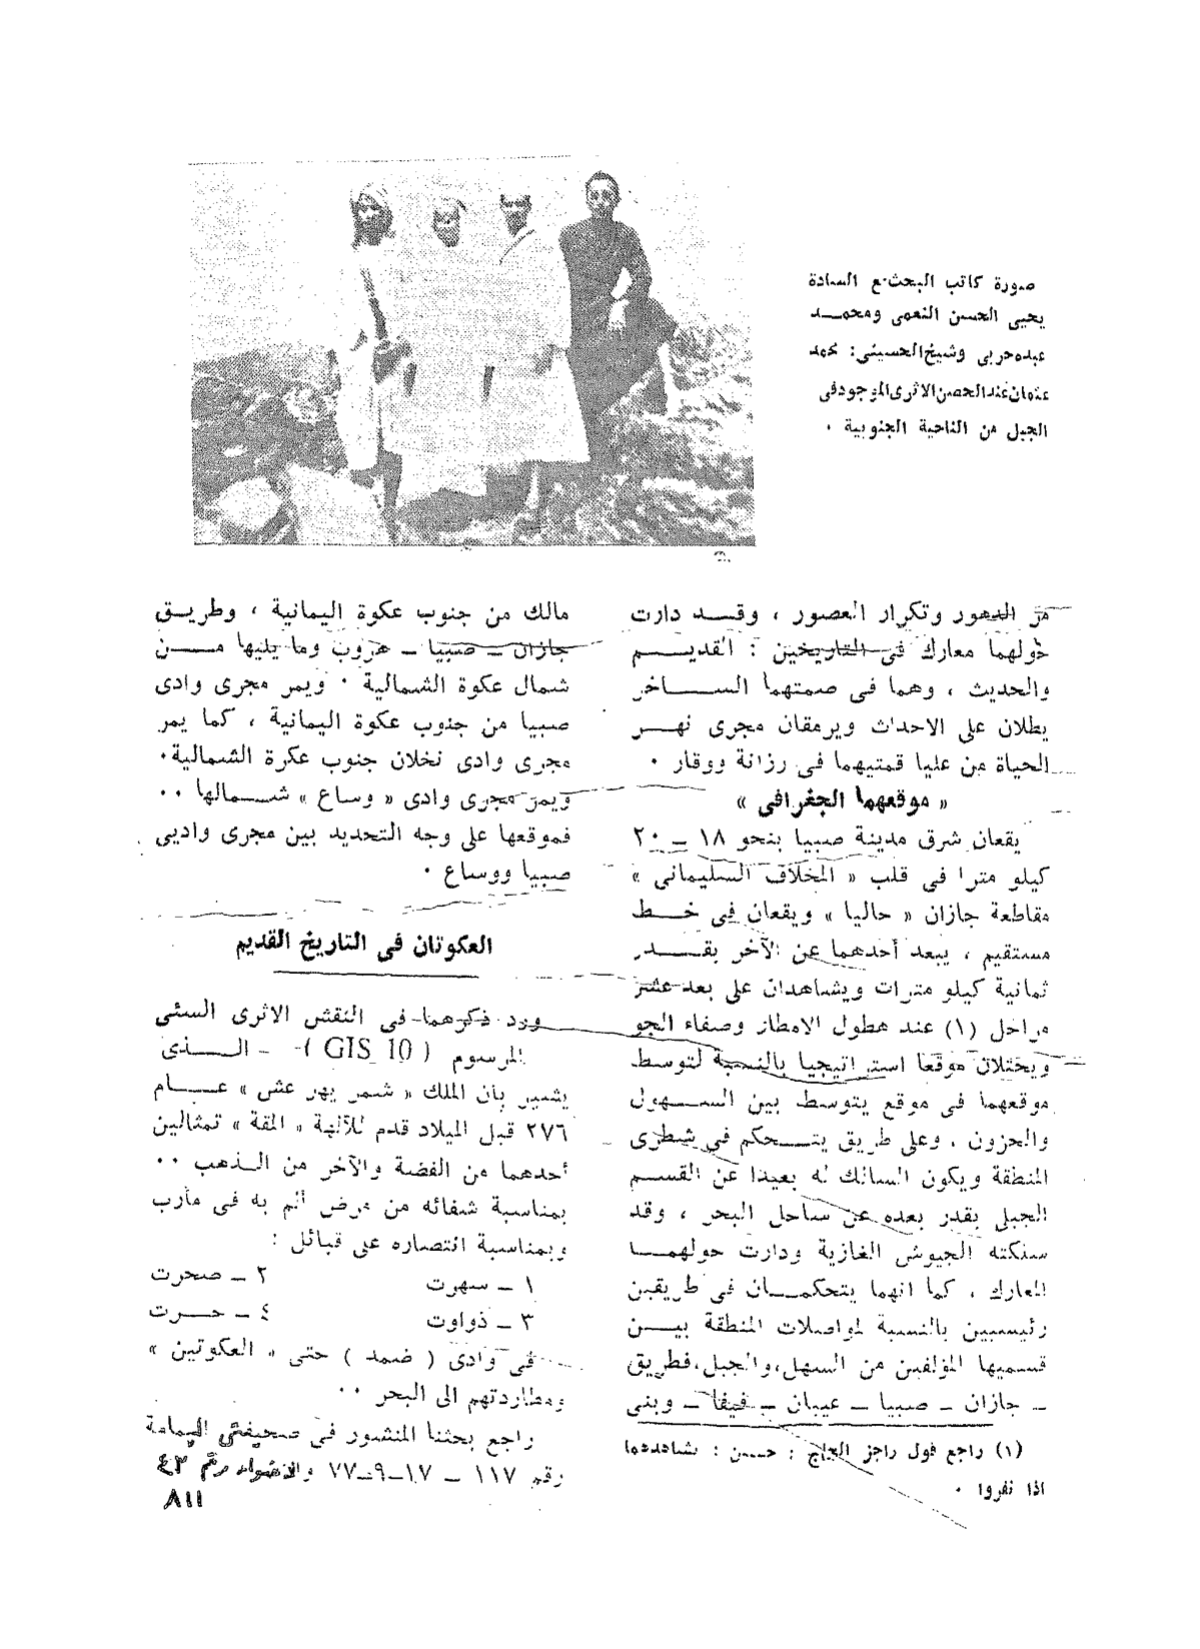 صورة كاتب البحث مع السادة
يحيى الحسن النعمى ومحمـــد
عبده حربى وشيخ الحسينى : محمد
عثمان عند الحصن الاثرى الموجود فى
الجبل من الناحية الجنوبية .
مر الدهور وتكرار العصور ، وقـــد دارت
حولهما معارك فى التاريخين : القديـــم
والحديث ، وهما فى صمتهما الســـاخر
يطلان على الاحداث ويرمقان مجرى نهـــر
الحياة من عليا قمتيهما فى رزانة ووقار .
« موقعهما الجغرافى »
يقعان شرق مدينة صبيا بنحو ١٨ – ٢٠
كيلو مترا فى قلب « المخلاف السليمانى »
مقاطعة جازان « حاليا » ويقعان فى خـــط
مستقيم ، يبعد أحدهما عن الآخر بقـــدر
ثمانية كيلو مترات ويشاهدان على بعد عشر
مراحل (١) عند هطول الامطار وصفاء الجو
ويحتلان موقعا استراتيجيا بالنسبة لتوسط
موقعهما فى موقع يتوسط بين الســـهول
والحزون ، وعلى طريق يتـــحكم فى شطرى
المنطقة ويكون السالك له بعيدا عن القسم
الجبلى بقدر بعده عن ساحل البحر ، وقد
سلكته الجيوش الغازية ودارت حولهمـــا
المعارك ، كما انهما يتحكمـــان فى طريقين
رئيسيين بالنسبة لمواصلات المنطقة بيـــن
قسميها المؤلفين من السهل، والجبل، فطريق
– جازان – صبيا – عيبان – فيفا – وبنى
(١) راجع قول راجز الحاج : حسن : نشاهدهما
اذا نفروا .
مالك من جنوب عكوة اليمانية ، وطريـــق
جازان – صبيا – هروب وما يليها مـــن
شمال عكوة الشمالية . ويمر مجرى وادى
صبيا من جنوب عكوة اليمانية ، كما يمر
مجرى وادى نخلان جنوب عكرة الشمالية .
ويمر مجرى وادى « وساع » شـــمالها . .
فموقعها على وجه التحديد بين مجرى واديى
صبيا ووساع .
العكوتان فى التاريخ القديم
ورد ذكرهما فى النقش الاثرى السبئى
المرسوم ( GIS 10 ) – الـــذى
يشير بان الملك « شمر يهر عش » عـــام
٢٧٦ قبل الميلاد قدم للآلهة « المقة » تمثالين
أحدهما من الفضة والآخر من الـــذهب . .
بمناسبة شفائه من مرض ألم به فى مأرب
وبمناسبة انتصاره على قبائل :
١ – سهرت ٢ – صحرت
٣ – ذواوت ٤ – حـــرت
فى وادى ( ضمد ) حتى « العكوتين »
ومطاردتهم الى البحر . .
راجع بحثنا المنشور فى صحيفتى اليمامة
رقم ١١٧ – ١٧–٩–٧٧ والاضواء رقم ٤٣
٨١١